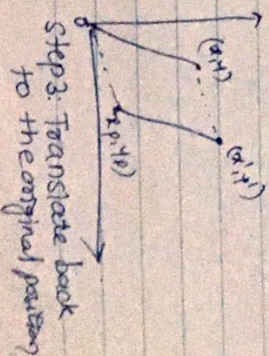 (x,y)
(x',y')
(xp,yp)
Step3: Translate back
to the original position